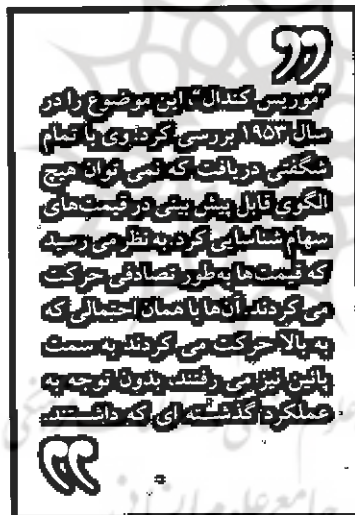 "موریس کندال"، این موضوع را در
سال ۱۹۵۳ بررسی کرد. وی با تمام
شگفتی دریافت که نمی توان هیچ
الگوی قابل پیش بینی در قیمت های
سهام شناسایی کرد. به نظر می رسید
که قیمت ها به طور تصادفی حرکت
می کردند. آن ها با همان احتمالی که
به بالا حرکت می کردند به سمت
پائین نیز می رفتند، بدون توجه به
عملکرد گذشته ای که داشتند.